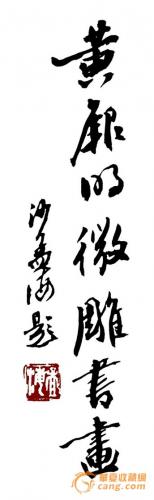 黄明微雕書畫
沙孟海题
华夏收藏网
cang.com